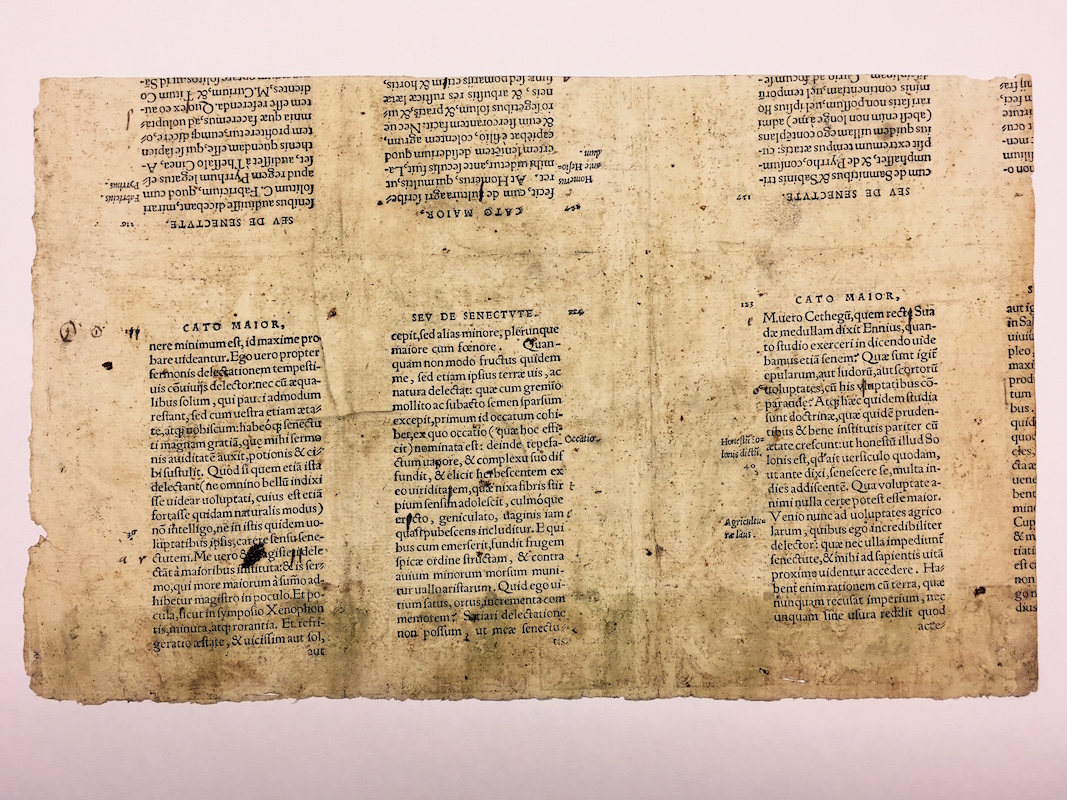 CATO MAIOR,
nere minimum est, id maxime pro
bare uideantur. Ego uero propter
sermonis delectationem tempesti-
uis cōuiuijs delector: nec cū æqua-
libus solum, qui pauci admodum
restant, sed cum uestra etiam æta-
te, atq; uobiscum: habeóq; senectu
ti magnam gratiā, quæ mihi sermo
nis auiditatē auxit, potionis & ci-
bi sustulit. Quòd si quem etiā ista
delectant (ne omnino bellū indixi
sse uidear uoluptati, cuius est etiā
fortasse quidam naturalis modus)
nō intelligo, ne in istis quidem uo-
luptatibus ipsis, carere sensu sene-
ctutem. Me uero & magisteria dele
ctāt à maioribus instituta: & is ser-
mo, qui more maiorum à summo ad-
hibetur magistro in poculo. Et po-
cula, sicut in symposio Xenophon
tis, minuta, atq; rorantia. Et refri-
geratio æstate, & uicissim aut sol,
aut
SEV DE SENECTVTE.
cepit, sed alias minore, plerunque
maiore cum fœnore. Quan-
quam non modo fructus quidem
me, sed etiam ipsius terræ uis, ac
natura delectat: quæ cum gremio
mollito ac subacto semen sparsum
excepit, primum id occatum cohi-
bet, ex quo occatio (quæ hoc effi-
cit) nominata est: deinde tepefa-
ctum uapore, & complexu suo dif
fundit, & elicit herbescentem ex
eo uiriditatem, quæ nixa fibris stir
pium sensim adolescit, culmóque
erecto, geniculato, uaginis iam
quasi pubescens includitur. E qui
bus cum emerserit, fundit frugem
spicæ ordine structam, & contra
auium minorum morsum muni-
tur uallo aristarum. Quid ego ui-
tium satus, ortus, incrementa com
memorem? Satiari delectatione
non possum, ut meæ senectu-
tis
Occatio.
123
CATO MAIOR,
M. uero Cethegū, quem recte Sua
dæ medullam dixit Ennius, quan-
to studio exerceri in dicendo uide
bamus etiā senem? Quæ sunt igit
epularum, aut ludorū, aut scortorū
uoluptates, cū his uoluptatibus cō-
parandæ? Atq; hæc quidem studia
sunt doctrinæ, quæ quidē pruden-
tibus & bene institutis pariter cū
ætate crescunt: ut honestū illud So
lonis est, qd' ait uersiculo quodam,
ut ante dixi, senescere se, multa in-
dies addiscentē. Qua uoluptate a-
nimi nulla certe potest esse maior.
Venio nunc ad uoluptates agrico
larum, quibus ego incredibiliter
delector: quæ nec ulla impediunt̄
senectute, & mihi ad sapientis uitā
proxime uidentur accedere. Ha-
bent enim rationem cū terra, quæ
nunquam recusat imperium, nec
unquam sine usura reddit quod
acce-
Honestū So-
lonis dictū,
40.
Agricultu-
ræ laus.
aut ig
in Sal
uiuim
pleo,
maxi
prod
tum
bus.
quid
quoc
cles,
cta æ
uene
bent
minc
Cup
& m
tiati
est ca
non
go n
dius
SEV DE SENECTVTE.
senibus audiuisse dicebant, mirari
solitum C. Fabricium, quod cum
apud regem Pyrrhum legatus es-
set, audisset à Thessalo Cinea, A-
thenis quendam esse, qui se sapien
tem profiteretur, eumq; dicere, o-
mnia quæ faceremus, ad uolupta-
tem esse referenda. Quod ex eo au-
dientes, M. Curium, & Titum Co
Fabricius.
Pyrrhus.
CATO MAIOR,
fecit, cum de cultura agri scribe-
ret. At Homerus, qui multis, ut
mihi uidetur, ante seculis fuit, La-
ertem lenientem desiderium quod
capiebat è filio, colentem agrum,
& eum stercorantem facit. Nec ue
ro segetibus solum, & pratis, & ui-
neis, & arbustis res rusticæ lætæ
sunt, sed pomarijs etiam & hortis,
Homerus
ante Hesio-
dum.
127
SEV DE SENECTVTE.
cum de Samnitibus, & Sabinis tri-
umphasset, & de Pyrrho, consum-
psit extremum tempus ætatis: cu-
ius quidem uillam ego contēplans
(abest enim non longe à me) admi
rari satis non possum, uel ipsius ho
minis continentiam, uel temporū
disciplinam. Curio ad focum se-